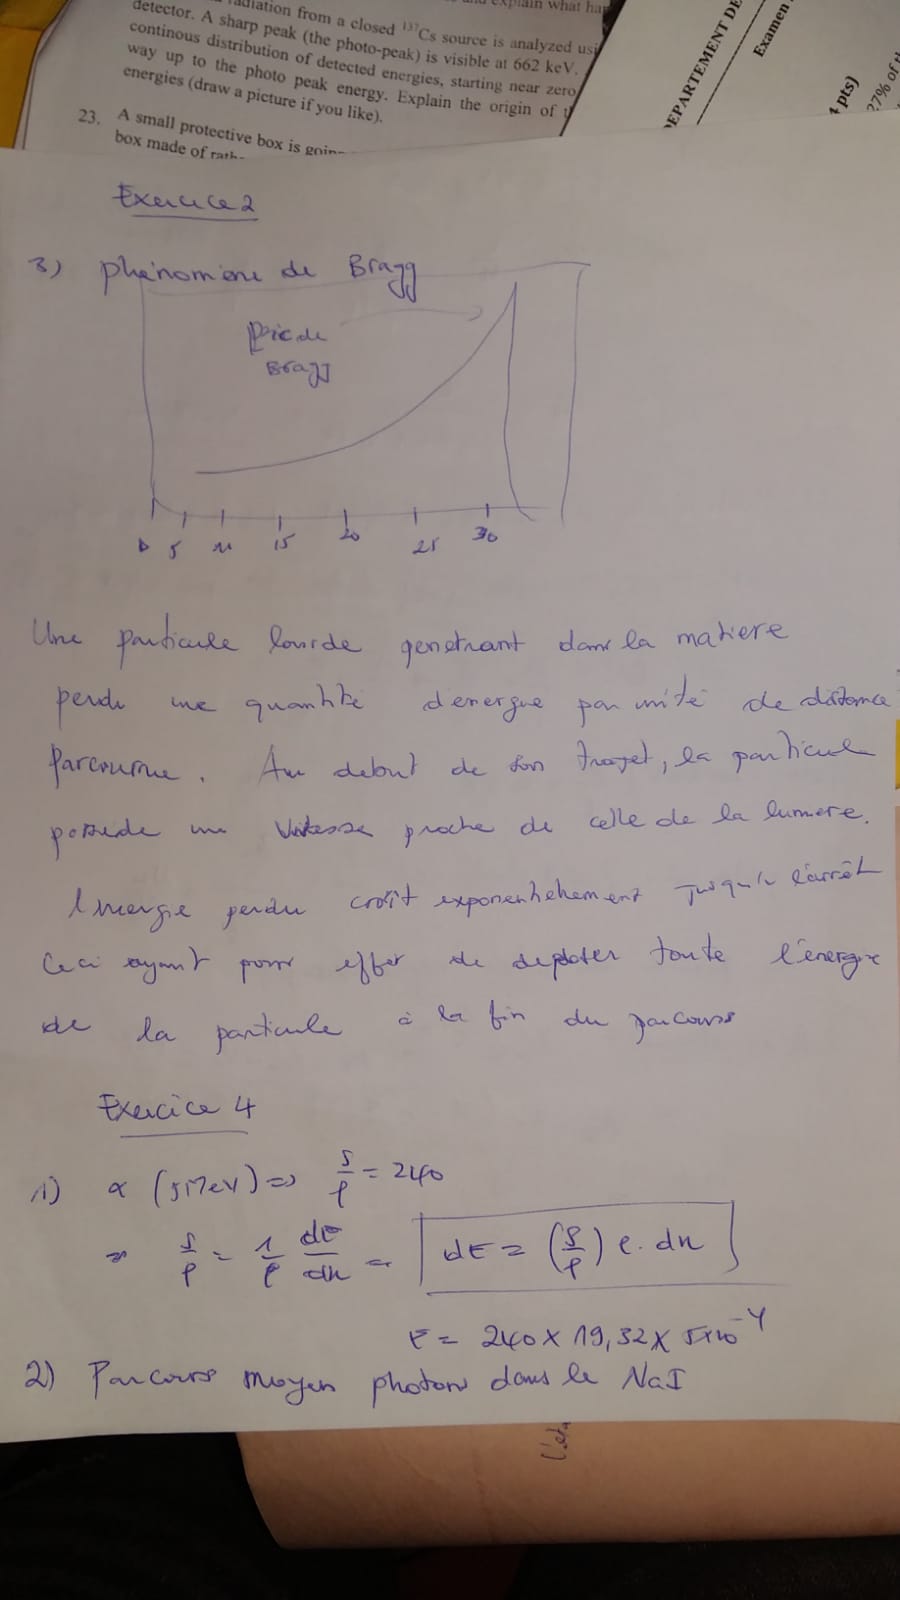 explain what ha
radiation from a closed ¹³⁷Cs source is analyzed usi
detector. A sharp peak (the photo-peak) is visible at 662 keV.
continous distribution of detected energies, starting near zero
way up to the photo peak energy. Explain the origin of t
energies (draw a picture if you like).
23. A small protective box is goin
box made of rath
DEPARTEMENT DE
Examen
4 pts)
27% of th
Exercice 2
3) phénomène de Bragg
Pic de
Bragg
0 5 10 15 20 25 30
Une particule lourde penetrant dans la matiere
perdu une quantité d'energie par unité de distance
Parcourue. Au debut de son trajet, la particule
possede une vitesse proche de celle de la lumiere.
l'energie perdu croît exponentiellement jusqu'à l'arrêt
Ceci ayant pour effet de deposer toute l'énergie
de la particule à la fin du parcours
Exercice 4
1) α (5 MeV) => S/ρ = 240
=> S/ρ = 1/ρ dE/dx = dE = (S/ρ) ρ. dx
E = 240 x 19,32 x 5x10⁻⁴
2) Parcours moyen photons dans le NaI